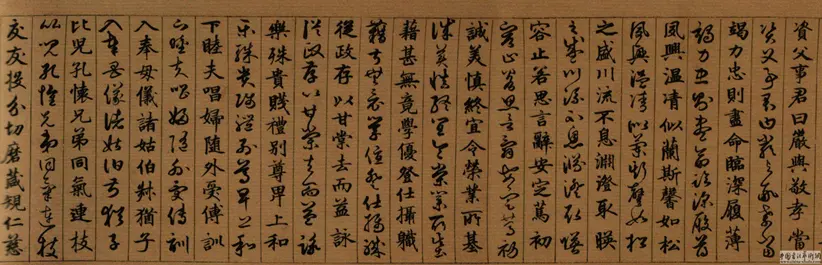 資父事君曰嚴與敬孝當
資父事君曰嚴與敬孝當
竭力忠則盡命臨深履薄
竭力忠則盡命臨深履薄
夙興溫凊似蘭斯馨如松
夙興溫凊似蘭斯馨如松
之盛川流不息淵澄取暎
之盛川流不息淵澄取暎
容止若思言辭安定篤初
容止若思言辭安定篤初
誠美慎終宜令榮業所基
誠美慎終宜令榮業所基
藉甚無竟學優登仕攝職
藉甚無竟學優登仕攝職
從政存以甘棠去而益詠
從政存以甘棠去而益詠
樂殊貴賤禮別尊卑上和
樂殊貴賤禮別尊卑上和
下睦夫唱婦隨外受傅訓
下睦夫唱婦隨外受傅訓
入奉母儀諸姑伯叔猶子
入奉母儀諸姑伯叔猶子
比兒孔懷兄弟同氣連枝
比兒孔懷兄弟同氣連枝
交友投分切磨箴規仁慈